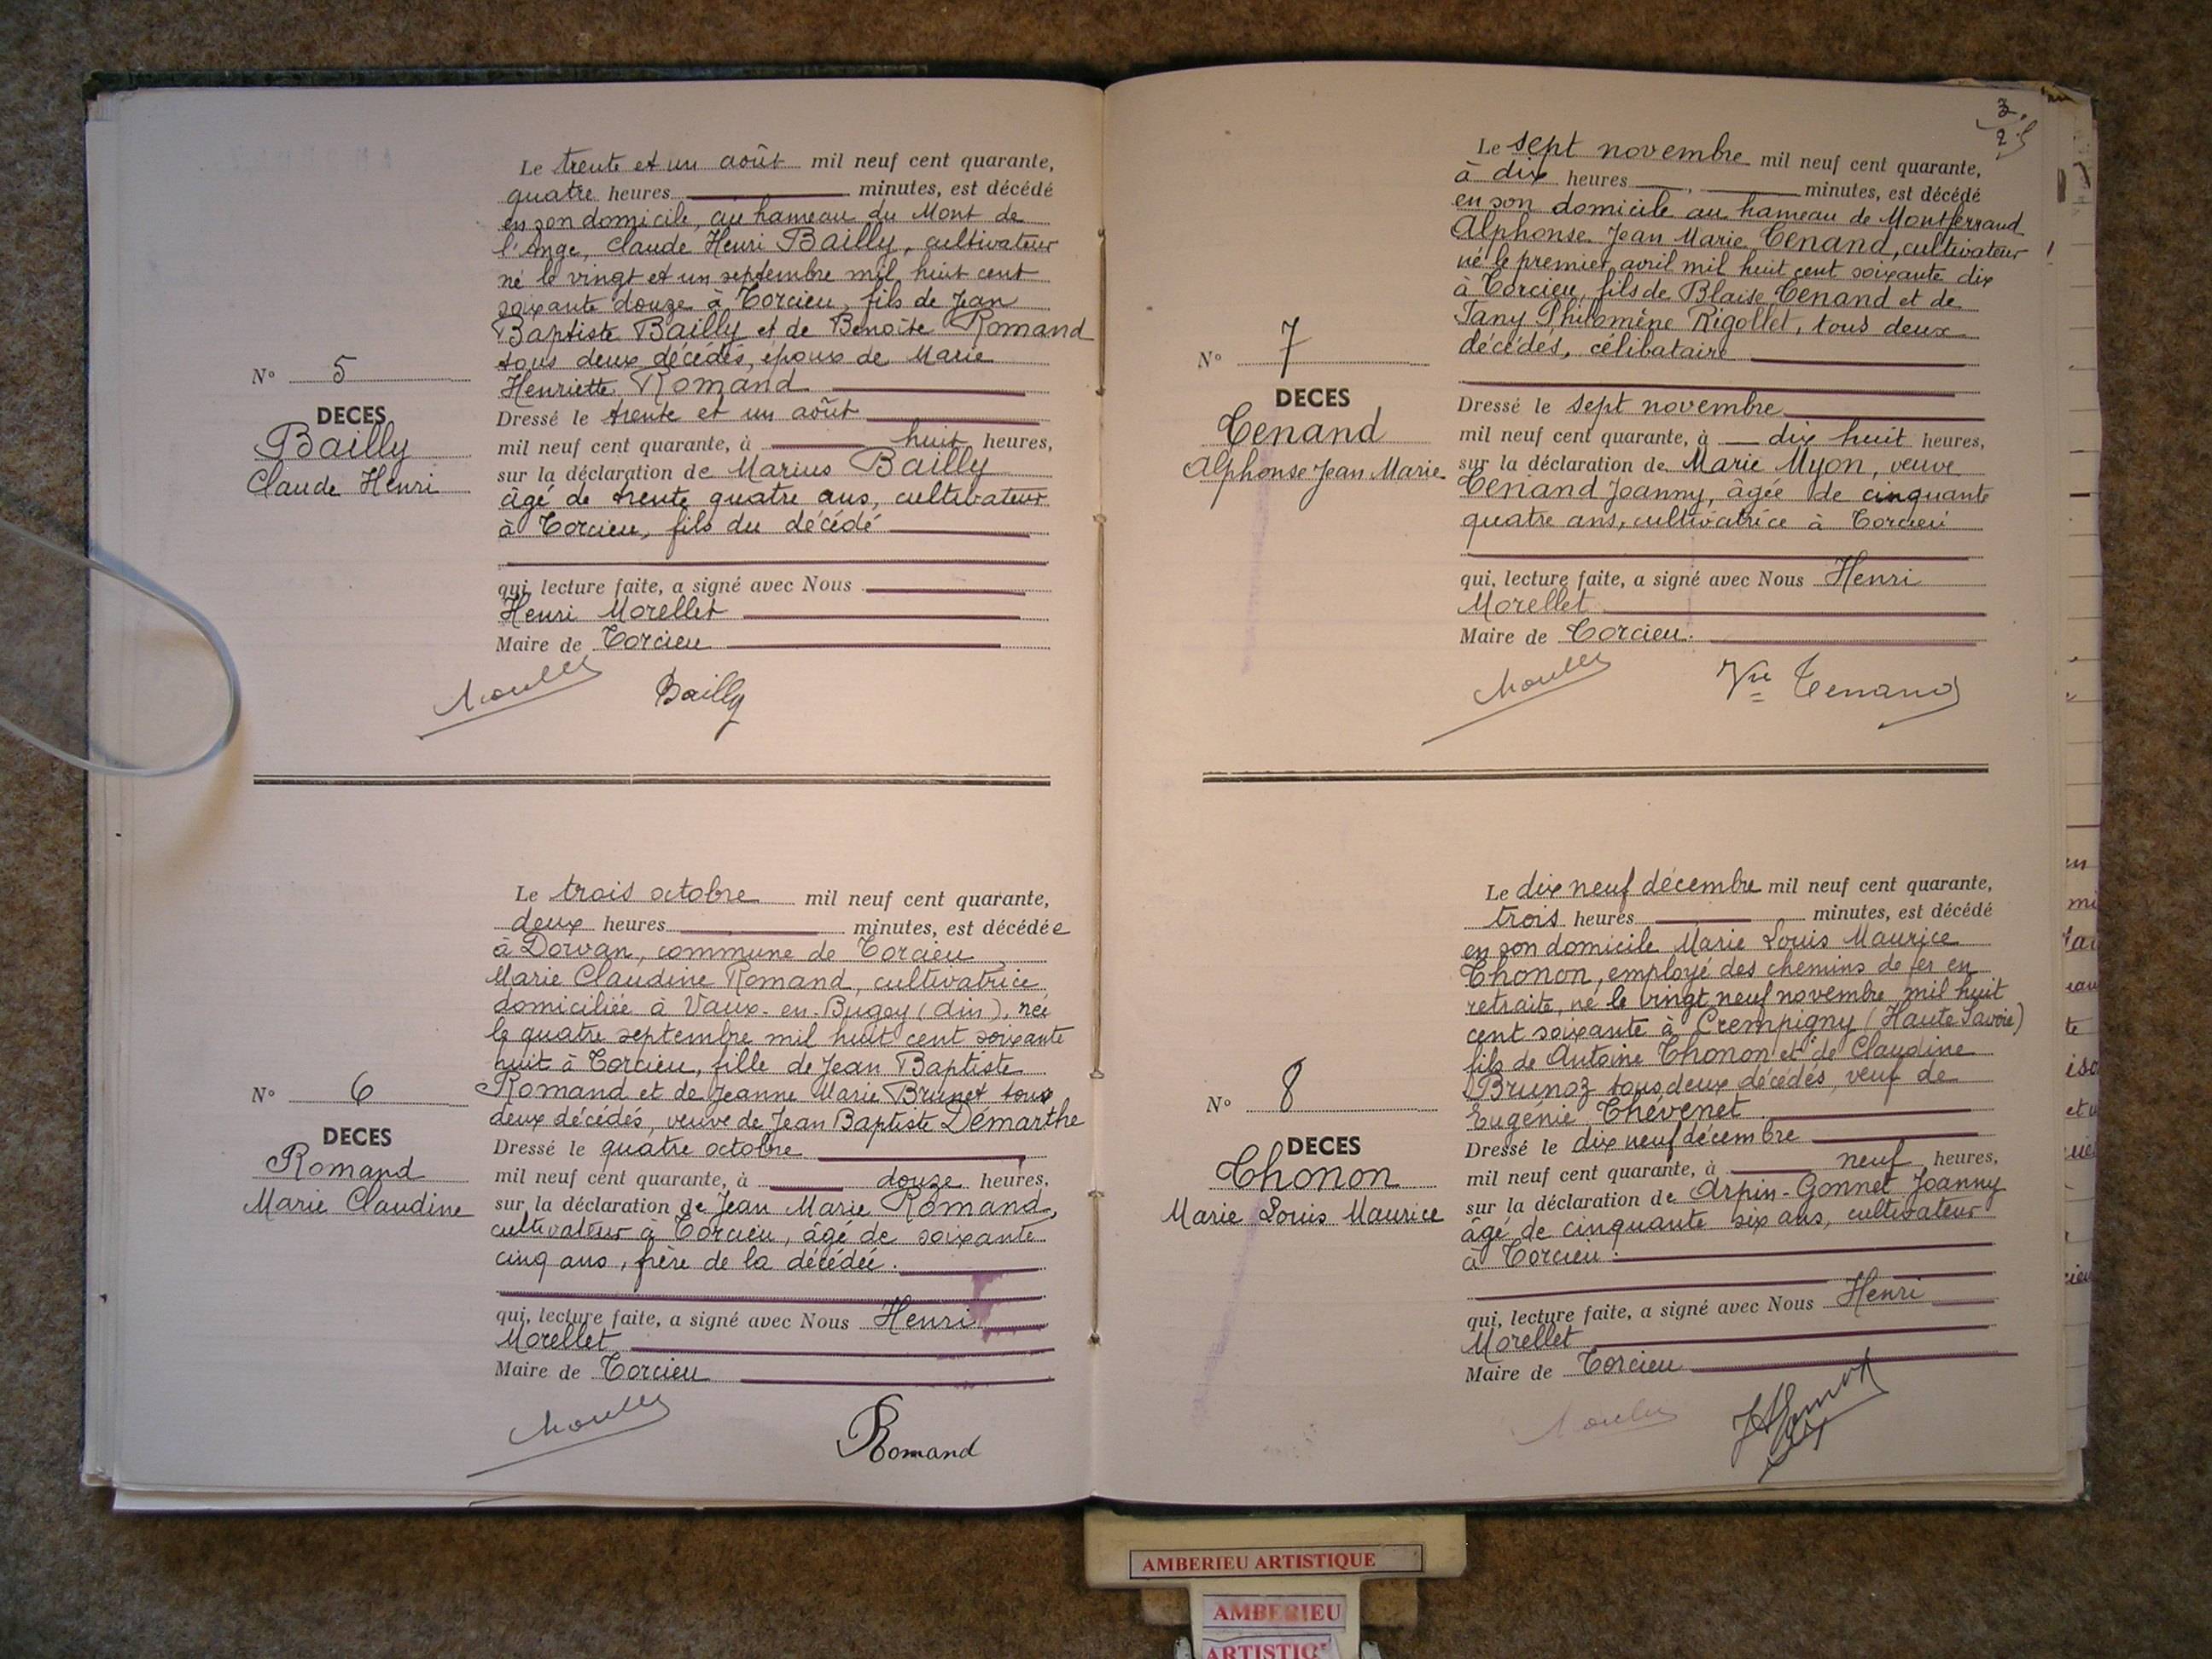 Le trente et un août mil neuf cent quarante,
quatre heures minutes, est décédé
en son domicile, au hameau du Mont de
l'Ange, Claude Henri Bailly, cultivateur
né le vingt et un septembre mil huit cent
soixante douze à Torcieu, fils de Jean
Baptiste Bailly et de Benoîte Romand
tous deux décédés, époux de Marie
Henriette Romand
N° 5
DECES
Bailly
Claude Henri
Dressé le trente et un août
mil neuf cent quarante, à huit heures,
sur la déclaration de Marius Bailly
âgé de trente quatre ans, cultivateur
à Torcieu, fils du décédé
qui, lecture faite, a signé avec Nous
Henri Morellet
Maire de Torcieu
Bailly
Le trois octobre mil neuf cent quarante,
deux heures minutes, est décédée
à Dorvan, commune de Torcieu
Marie Claudine Romand, cultivatrice
domiciliée à Vaux-en-Bugey (Ain), née
le quatre septembre mil huit cent soixante
huit à Torcieu, fille de Jean Baptiste
Romand et de Jeanne Marie Brunet tous
deux décédés, veuve de Jean Baptiste Démarthe
N° 6
DECES
Romand
Marie Claudine
Dressé le quatre octobre
mil neuf cent quarante, à douze heures,
sur la déclaration de Jean Marie Romand,
cultivateur à Torcieu, âgé de soixante
cinq ans, frère de la décédée.
qui, lecture faite, a signé avec Nous Henri
Morellet
Maire de Torcieu
Romand
Le sept novembre mil neuf cent quarante,
à dix heures minutes, est décédé
en son domicile au hameau de Montferrand
Alphonse Jean Marie Tenand, cultivateur
né le premier avril mil huit cent soixante dix
à Torcieu, fils de Blaise Tenand et de
Fany Philomène Rigollet, tous deux
décédés, célibataire
N° 7
DECES
Tenand
Alphonse Jean Marie
Dressé le sept novembre
mil neuf cent quarante, à dix huit heures,
sur la déclaration de Marie Myon, veuve
Tenand Joanny, âgée de cinquante
quatre ans, cultivatrice à Torcieu
qui, lecture faite, a signé avec Nous Henri
Morellet
Maire de Torcieu.
Vve Tenand
Le dix neuf décembre mil neuf cent quarante,
trois heures minutes, est décédé
en son domicile Marie Louis Maurice
Thonon, employé des chemins de fer en
retraite, né le vingt neuf novembre mil huit
cent soixante à Crempigny (Haute Savoie)
fils de Antoine Thonon et de Claudine
Brunoz tous deux décédés, veuf de
Eugénie Thévenet
N° 8
DECES
Thonon
Marie Louis Maurice
Dressé le dix neuf décembre
mil neuf cent quarante, à neuf heures,
sur la déclaration de Arpin-Gonnet Joanny
âgé de cinquante six ans, cultivateur
à Torcieu.
qui, lecture faite, a signé avec Nous Henri
Morellet
Maire de Torcieu
AMBERIEU ARTISTIQUE
AMBERIEU
ARTISTIQ